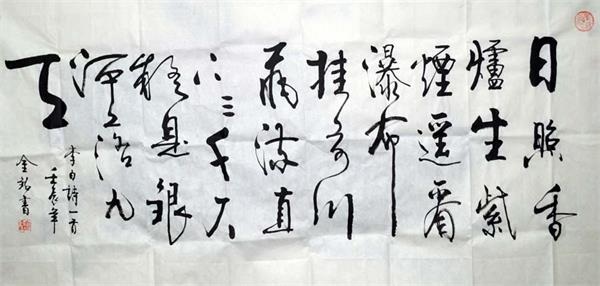 日照香
爐生紫
煙遥看
瀑布
挂前川
飛流直
下三千尺
疑是銀
河落九
天
李白詩一首
壬辰年
金 書